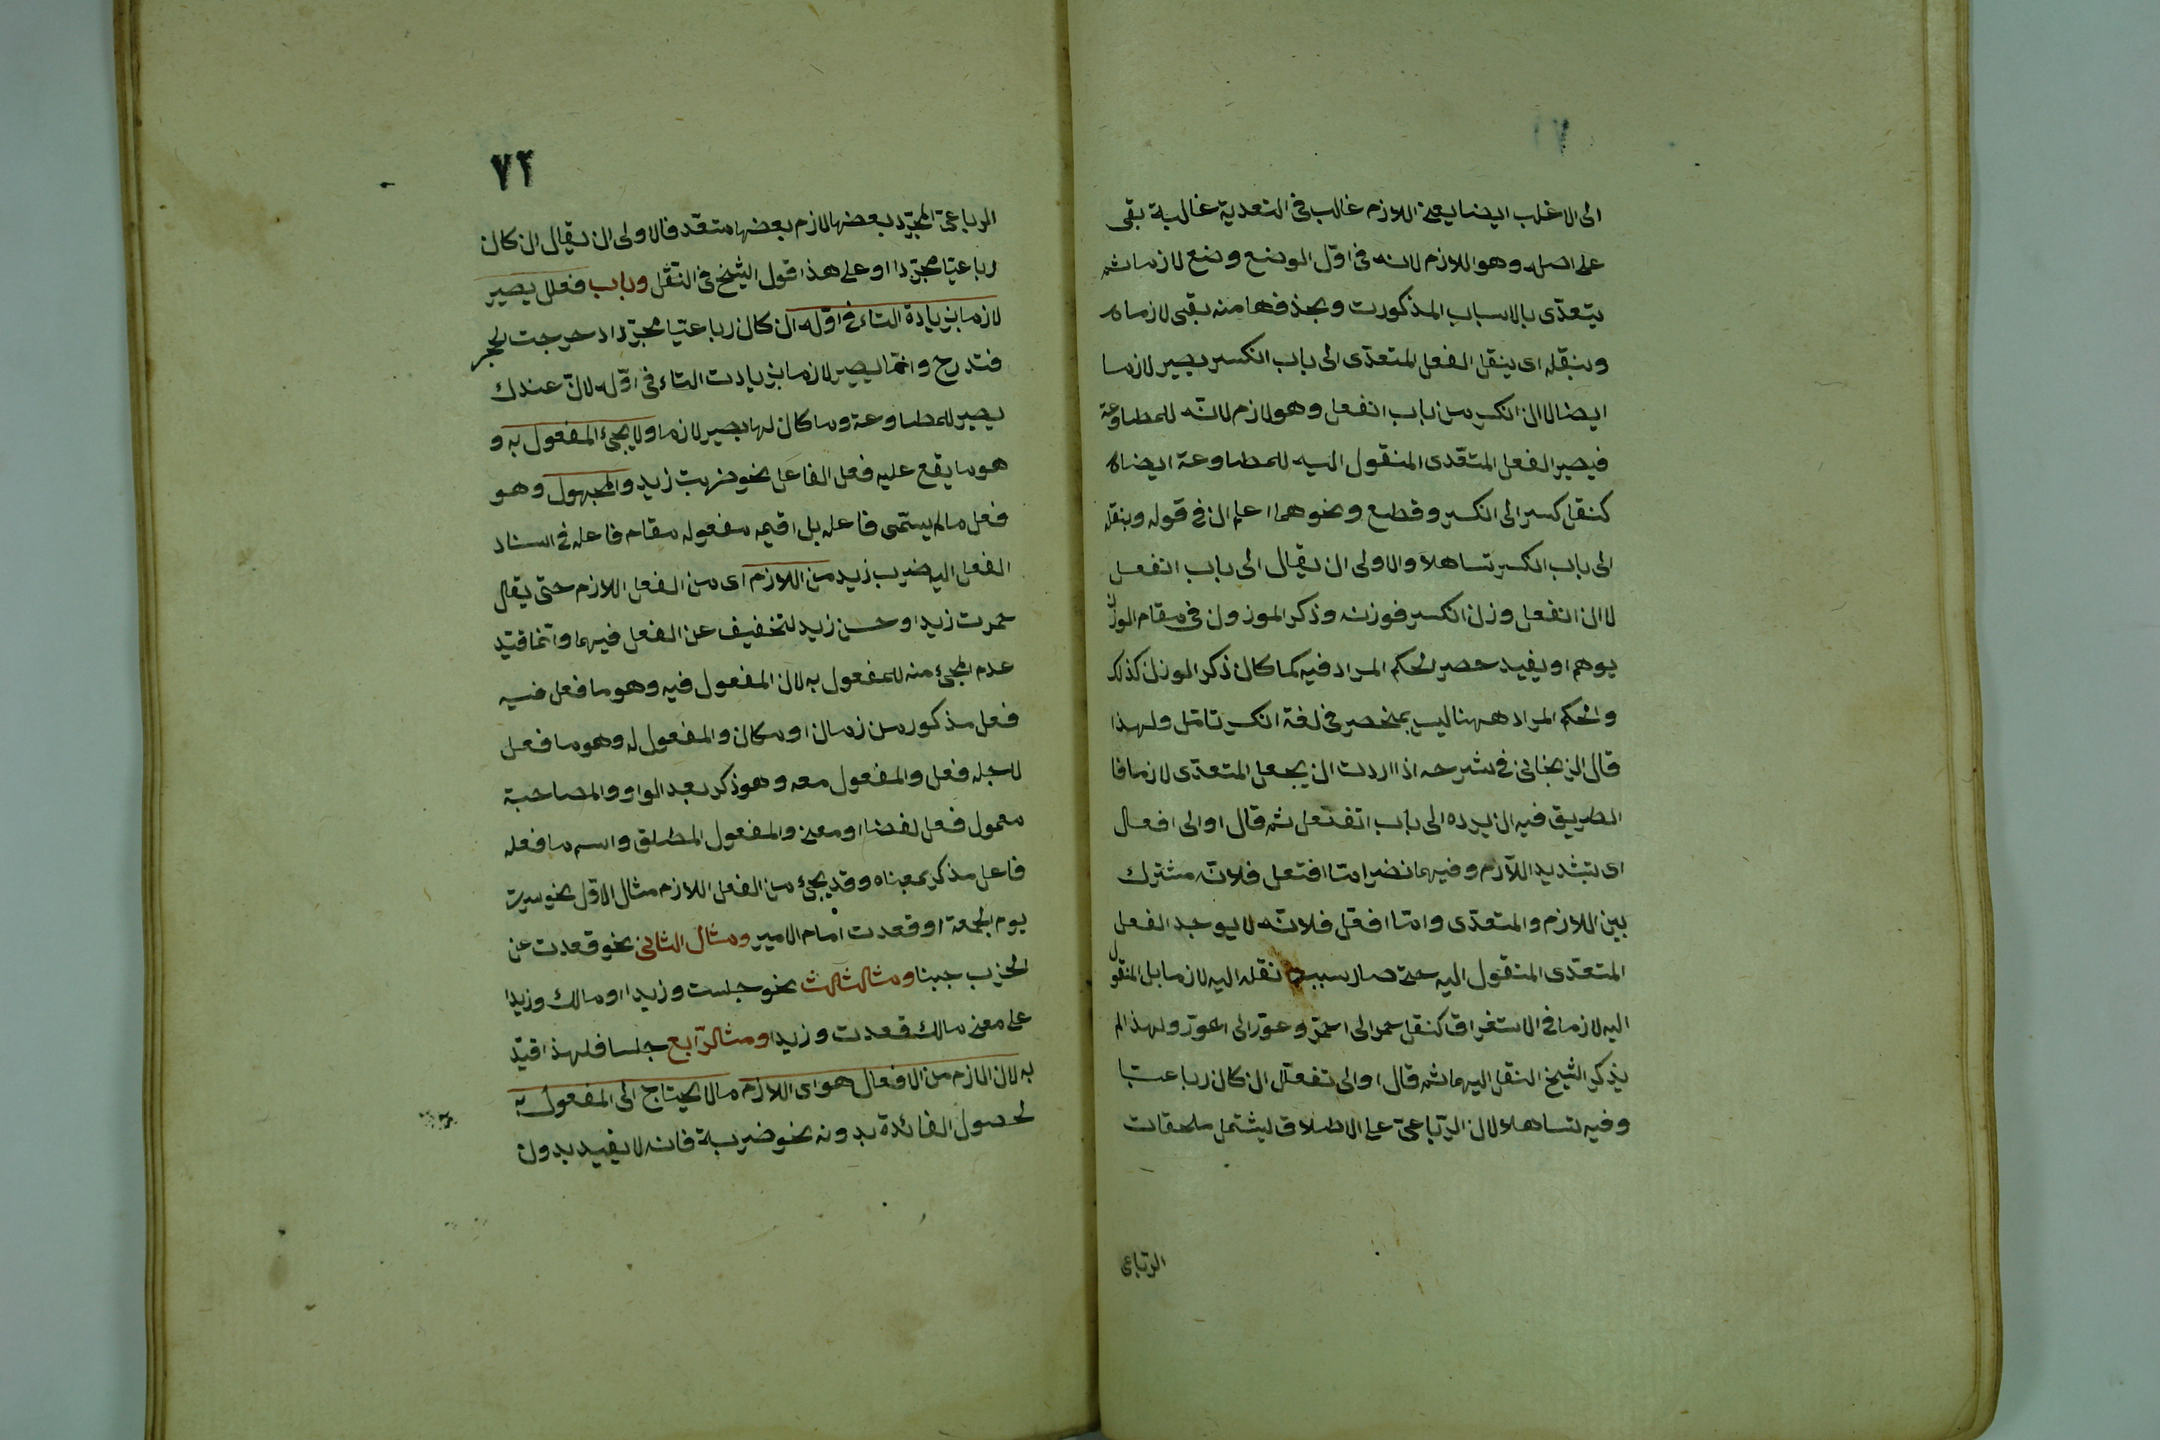 الى الاغلب ايضا يعنى اللازم غالب فى التعدية غالبة بقى
على اصله وهو اللازم لانه فى اوّل الوضع وضع لازما ثم
يتعدّى بالاسباب المذكورت وبحذفها منه بقى لازما
وبنقله اى ينقل الفعل المتعدّى الى باب انكسر يصير لازما
ايضا لاان انكسر من باب انفعل وهو لازم لانّه للمطاوعة
فيصير الفعل المتعّدى المنقول اليه للمطاوعة ايضا
كنقل كسر الى انكسر وقطع ونحوهما اعلم ان فى قوله وبنقله
الى باب انكسر تساهلا والاولى ان يقال الى باب انفعل
لاان انفعل وزن انكسر فوزنه وذكر الموزون فى مقام الوزن
يوهم او يفيد حصر الحكم المراد فيه كما كان ذكر الوزن كذلك
والحكم المراد ههنا ليس بمنحصر فى لغة انكسر تامّل ولهذا
قال الزنجانى فى شرحه اذا اردت ان يجعل المتعدّى لازما فا
الطريق فيه ان يرده الى باب انفعل ثم قال او الى افعال
اى بتشديد اللّازم وفيهما نضر امّا افتعل فلانّه مشترك
بين اللازم والمتعدّى وامّا افعّل فلانّه لا يوجد الفعل
المتعدّى المنقول اليه حتى صار سبب نقله اليه لازما بل المنقول
اليه لازما فى الاستغراق كنقل حمر الى احمرّ وعور الى اعورّ ولهذا لم
يذكر الشيخ النقل اليهما ثم قال او الى تفعلل ان كان رباعيّا
وفيه تساهلا لان الرّباعىّ على الاطلاق ليشتمل ملحقات
الرّباعى
٧٤
الرباعىّ المجرّد بعضها لازم بعضها متعّد فالاولى ان يقال ان كان
رباعيّا مجرّدا او على هذا قول الشيخ فى النّقل وباب فعلل يصير
لازما بزيادة التاء فى اوّله ان كان رباعيّا مجرّدا دحرجت الحجر
فتدرح وانّما يصير لازما بزيادت التاء فى اوّله لانّ عندك
يصير للمطاوعة وما كان لها يصير لازما ولا يجئ المفعول به و
هو ما يقع عليه فعل الفاعل نحو ضربت زيد والمجهول وهو
فعل مالم يسمّى فاعله بل اقيم مفعوله مقام فاعله فى اسناد
الفعل اليه ضرب زيد من اللازم اى من الفعل اللازم حتى يقال
حمرت زيد او حسن زيد لتخفيف عن الفعل فيهما وانّما قيّد
عدم المجئ منه للمفعول به لان المفعول فيه وهو ما فعل فيه
فعل مذكور من زمان او مكان والمفعول له وهو ما فعل
لاجله فعل والمفعول معه وهو ذكر بعد الواو والمصاحبة
معمول فعل لفضا او معنى والمفعول المطلق واسم ما فعله
فاعل مذكر بمعناه وقد يجئ من الفعل اللازم مثال الاوّل نحو سرت
يوم الجمعة او قعدت امام الامير ومثال الثانى نحو قعدت عن
الحرب جبنا ومثال ثالث نحو جلست وزيدا او مالك وزيدا
على معنى مالك قعدت وزيدا ومثال رّابع جلسا فلهذا قيّد
به لان الازم من الافعال هو اى اللازم مالا يحتاج الى المفعول به
لحصول الفائدة بدونه نحو ضربية فانه لا يفيد بدون